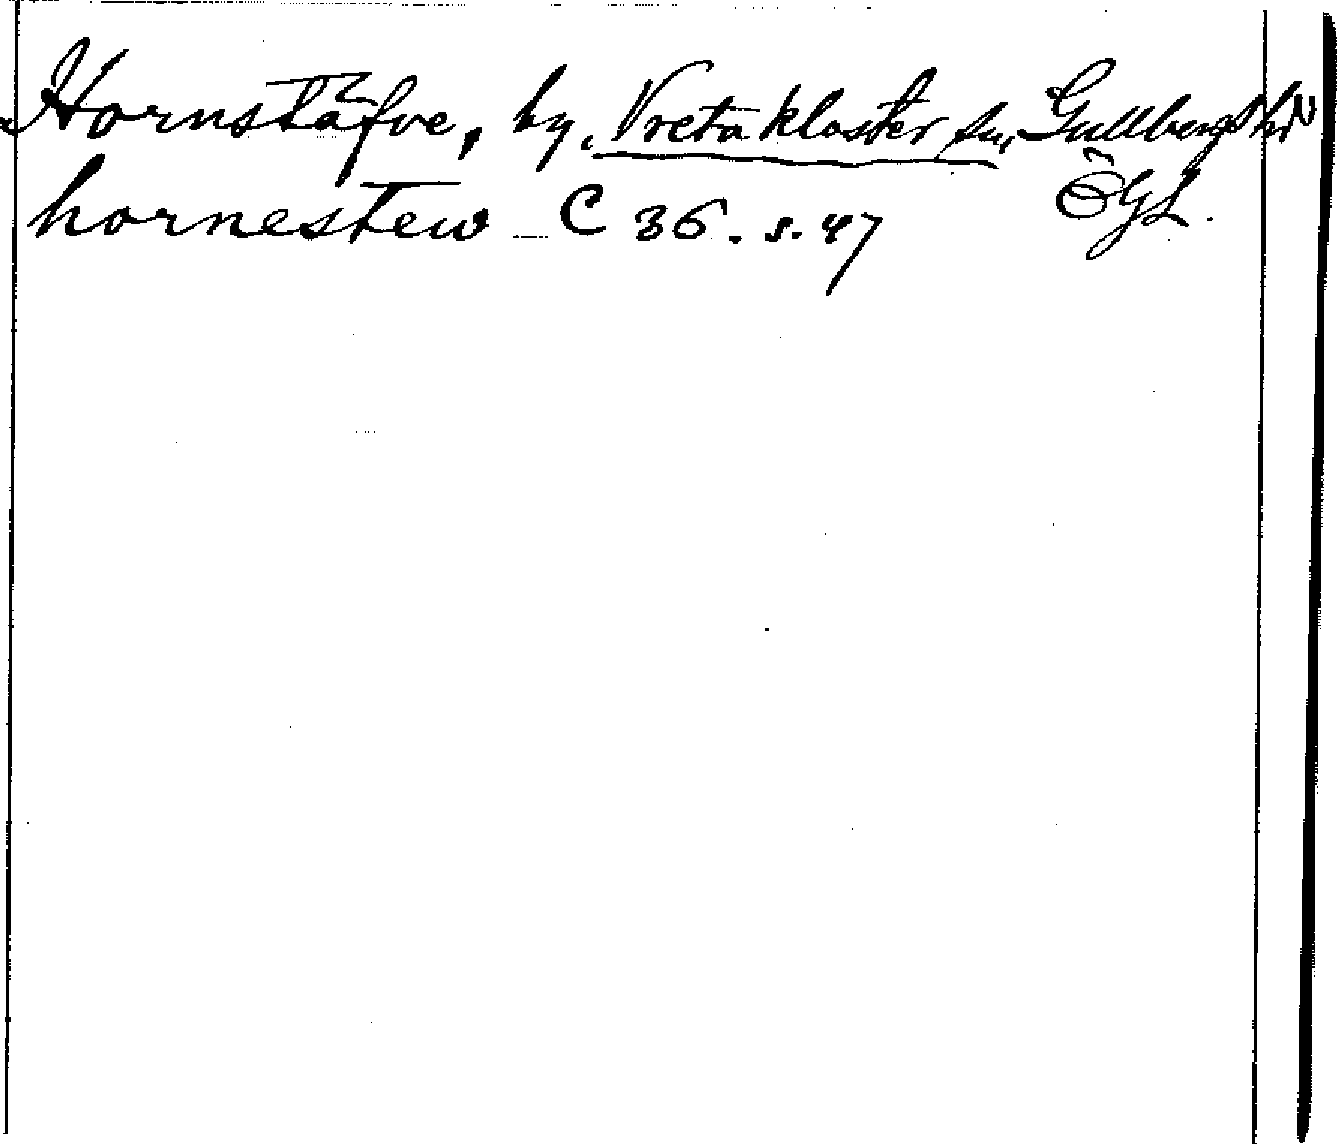 Hornstäfve, by, Vreta kloster sn, Gullbergs hd
hornestew C 36. s. 47 ÖgL.